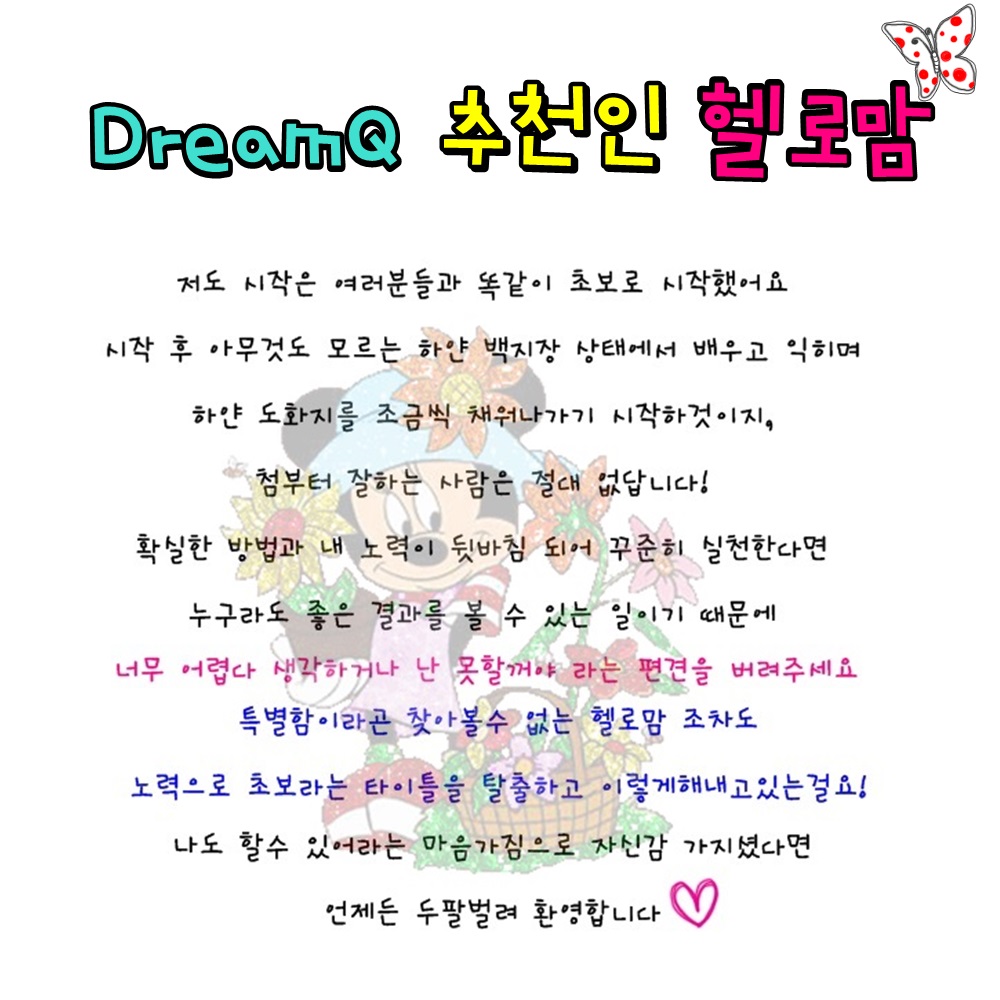 DreamQ 추천인 헬로맘
저도 시작은 여러분들과 똑같이 초보로 시작했어요
시작 후 아무것도 모르는 하얀 백지장 상태에서 배우고 익히며
하얀 도화지를 조금씩 채워나가기 시작하것이지,
첨부터 잘하는 사람은 절대 없답니다!
확실한 방법과 내 노력이 뒷바침 되어 꾸준히 실천한다면
누구라도 좋은 결과를 볼 수 있는 일이기 때문에
너무 어렵다 생각하거나 난 못할꺼야 라는 편견을 버려주세요
특별함이라곤 찾아볼수 없는 헬로맘 조차도
노력으로 초보라는 타이틀을 탈출하고 이렇게해내고있는걸요!
나도 할수 있어라는 마음가짐으로 자신감 가지셨다면
언제든 두팔벌려 환영합니다